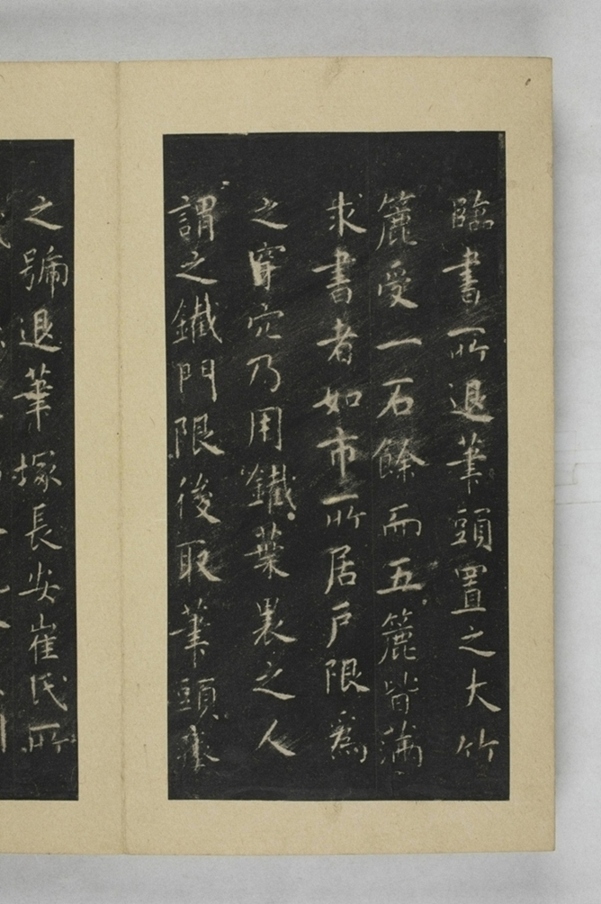 臨書所退筆頭置之大竹
簏受一石餘而五簏皆滿
求書者如市所居户限爲
之穿穴乃用鐵葉裹之人
謂之鐵門限後取筆頭瘞
之號退筆塚長安崔氏所